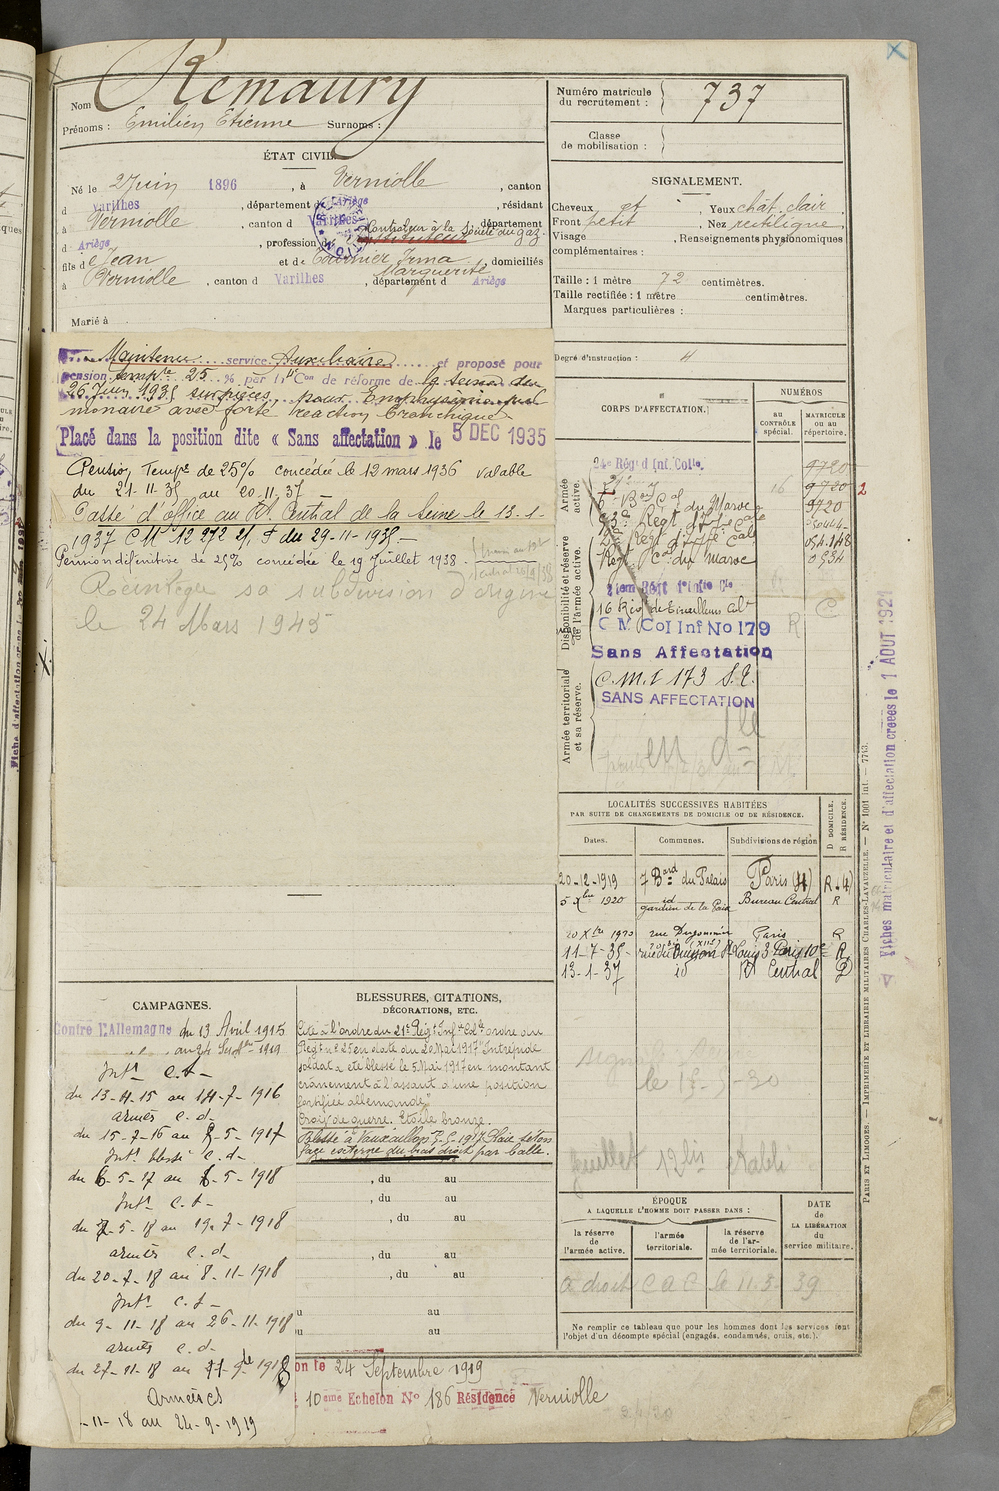 Nom Remaury
Prénoms : Emilien Etienne Surnoms :
ÉTAT CIVIL.
Né le 2 Juin 1896, à Verniolle, canton
d Varilhes, département d Ariège, résidant
à Verniolle, canton d Varilhes, département
d Ariège, profession d Controleur à la Société du gaz
fils de Jean et de Tournier Irma Marguerite, domiciliés
à Verniolle, canton d Varilhes, département d Ariège
Marié à
Maintenu service Auxiliaire et proposé pour
pension temp.re 25 % par Con de réforme de la Seine du
26 Juin 1935 sur pièces pour
monaire avec forte réaction bronchique
Placé dans la position dite « Sans affectation » le 5 DEC 1935
Pension Tempre de 25% concédée le 12 mars 1936 valable
du 21-11-35 au 20-11-37
Passé d'office au Rt Central de la Seine le 13-1-
1937 du 29-11-1935
Pension définitive de 25% concédée le 19 Juillet 1938
Réintégré sa subdivision d'origine
le 24 Mars 1945
Numéro matricule du recrutement : 737
Classe de mobilisation :
SIGNALEMENT.
Cheveux ct, Yeux chât. clair
Front petit, Nez rectiligne
Visage, Renseignements physionomiques
complémentaires :
Taille : 1 mètre 72 centimètres.
Taille rectifiée : 1 mètre centimètres.
Marques particulières :
Degré d'instruction : 4
CORPS D'AFFECTATION.
NUMÉROS
au CONTRÔLE spécial.
MATRICULE ou au répertoire.
Armée active.
Disponibilité et réserve de l'armée active.
Armée territoriale et sa réserve.
24e Régt d Inf. Colle. 9720
21e 9720 2
Bon Cal du Maroc 9720
Régt Cal du Maroc 0534
16 Rég. de Tirailleurs cal R C
C M Col Inf No 179
Sans Affectation
C.M.I 173 S.E.
SANS AFFECTATION
LOCALITÉS SUCCESSIVES HABITÉES
PAR SUITE DE CHANGEMENTS DE DOMICILE OU DE RÉSIDENCE.
Dates. Communes. Subdivisions de région D DOMICILE. R RÉSIDENCE.
20-12-1919 7 Bard du Palais Paris (4) R
5 Xbre 1920 id gardien de la Paix Bureau Central R
20 Xbre 1920 rue Dugommier Paris R
11-7-35 rue du Buisson St Louis 3 Paris 10e R
13-1-37 id Rt Central D
CAMPAGNES.
Contre l'Allemagne du 13 Avril 1915
au 24 Septbre 1919
Intr C.d
du 13-4-15 au 14-7-1916
armés C.d
du 15-7-16 au 5-5-1917
Intr blessé C.d
du 6-5-17 au 6-5-1918
Intr C.d
du 7-5-18 au 19-7-1918
armés C.d
du 20-7-18 au 8-11-1918
Intr C.d
du 9-11-18 au 26-11-1918
armés C.d
du 27-11-18 au
Armées
-11-18 au 24-9-1919
BLESSURES, CITATIONS,
DÉCORATIONS, ETC.
Cité à l'ordre du 21e Régt Infie Colle ordre du
Régt n° 25 en date du 20 Mai 1917 "Intrépide
soldat a été blessé le 5 Mai 1917 en montant
crânement à l'assaut d'une position
fortifiée allemande"
Croix de guerre. Etoile bronze.
Blessé à Vauxaillon 5-5-1917 Plaie séton
face externe du bras droit par balle.
, du au
, du au
, du au
, du au
, du au
au
au
24 Septembre 1919
10eme Echelon No 186 Résidence Verniolle
ÉPOQUE
A LAQUELLE L'HOMME DOIT PASSER DANS :
la réserve de l'armée active.
l'armée territoriale.
la réserve de l'armée territoriale.
DATE de LA LIBÉRATION du service militaire.
a droit C a C le 11.3 39
Ne remplir ce tableau que pour les hommes dont les services font
l'objet d'un décompte spécial (engagés, condamnés, omis, etc.).
Fiches matriculaire et d'affectation créées le 1 AOUT 1921
PARIS ET LIMOGES. — IMPRIMERIE ET LIBRAIRIE MILITAIRES CHARLES-LAVAUZELLE. — N° 1001 int. — 7743.